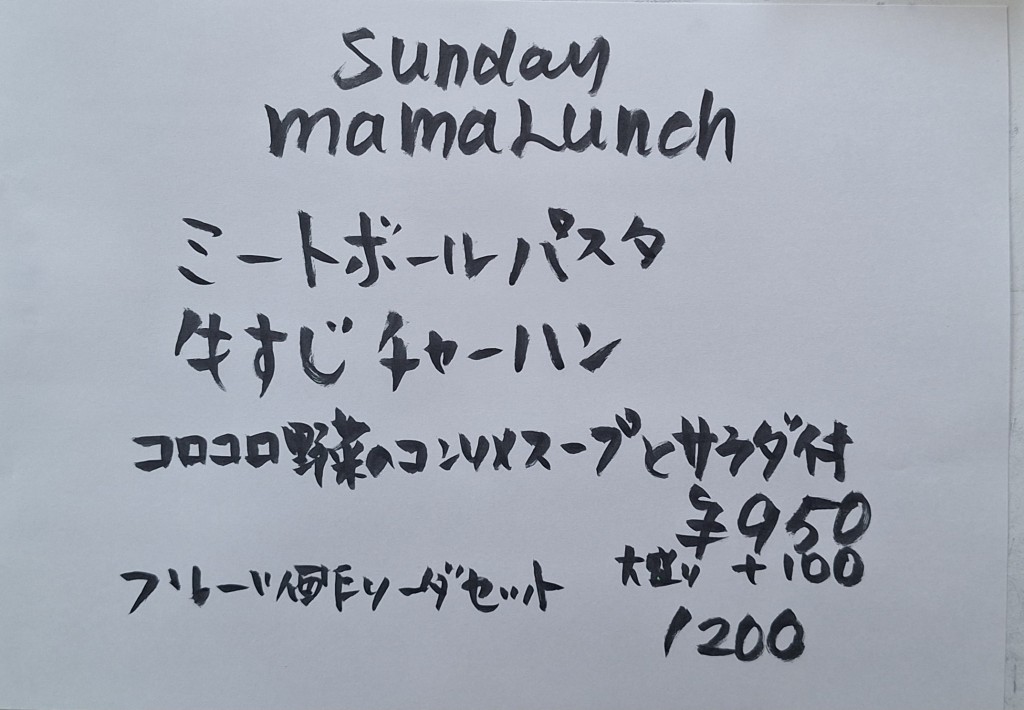 Sunday
mama Lunch
ミートボールパスタ
牛すじチャーハン
コロコロ野菜のコンソメスープとサラダ付
¥950
大盛り +100
フルーツ ソーダセット
1200